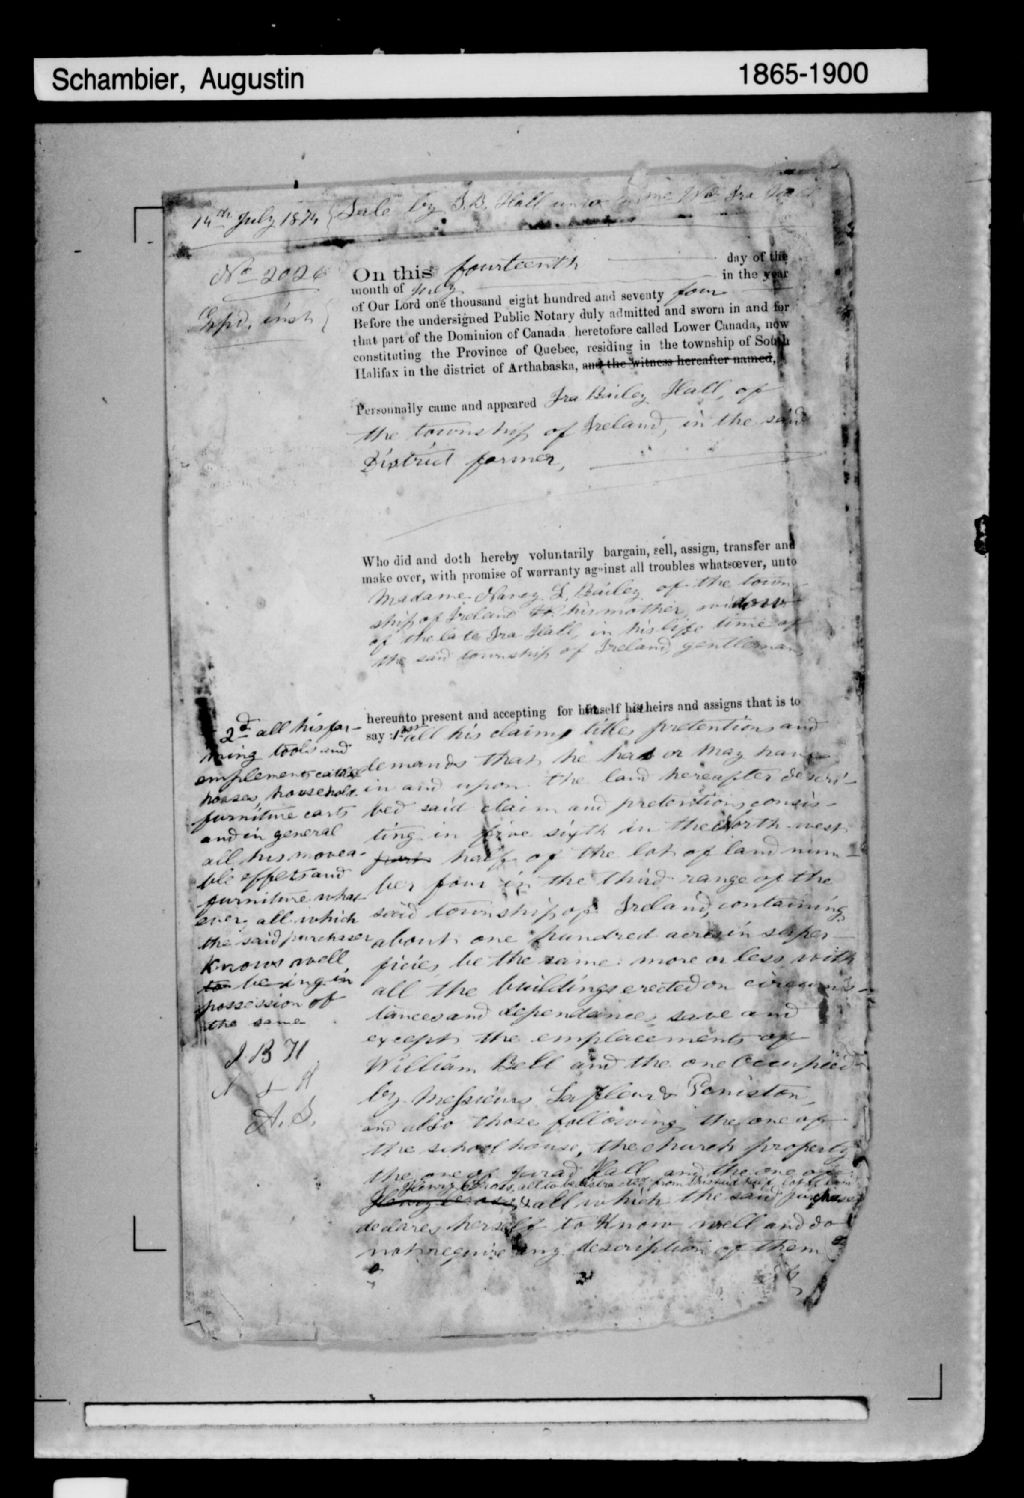 Schambier, Augustin 1865-1900
14th July 1874 Sale by I.B. Hall unto Ira
No 2026
On this fourteenth day of the
month of July in the year
of Our Lord one thousand eight hundred and seventy four
Before the undersigned Public Notary duly admitted and sworn in and for
that part of the Dominion of Canada heretofore called Lower Canada, now
constituting the Province of Quebec, residing in the township of South
Halifax in the district of Arthabaska, and the witness hereafter named,
Personnally came and appeared Ira Bailey Hall, of
the township of Ireland, in the said
District farmer,
Who did and doth hereby voluntarily bargain, sell, assign, transfer and
make over, with promise of warranty against all troubles whatsœver, unto
Madame Nancy L. Bailey of the town-
ship of Ireland his mother, widow
of the late Ira Hall, in his life time of
the said township of Ireland, gentleman,
hereunto present and accepting for himself his heirs and assigns that is to
say: 1st all his claims titles pretentions and
demands that he has or may have
in and upon the land hereafter descri-
bed said claim and pretentions consis-
ting in five sixth in the North west
part half of the lot of land num-
ber four in the third range of the
said township of Ireland, containing
about one hundred acres in super-
ficies, be the same more or less with
all the buildings erected on circums-
tances and dependences save and
except the emplacements of
William Bell and the one Occupied
by Messieurs Lafleur & Peniston,
and also those following the one of
the school house, the church property
the one of Jarad Hall, and the one of
Henry Cross, all to be from
all which the said purchaser
declares herself to Know well and do
not require any description of them
2d all his far-
ming tools and
emplements cattle
horses, household
furniture carts
and in general
all his movea-
ble effets and
furniture what
ever, all which
the said purchaser
Knows well
to being in
possession of
the same
I B H
N L H
A. S.